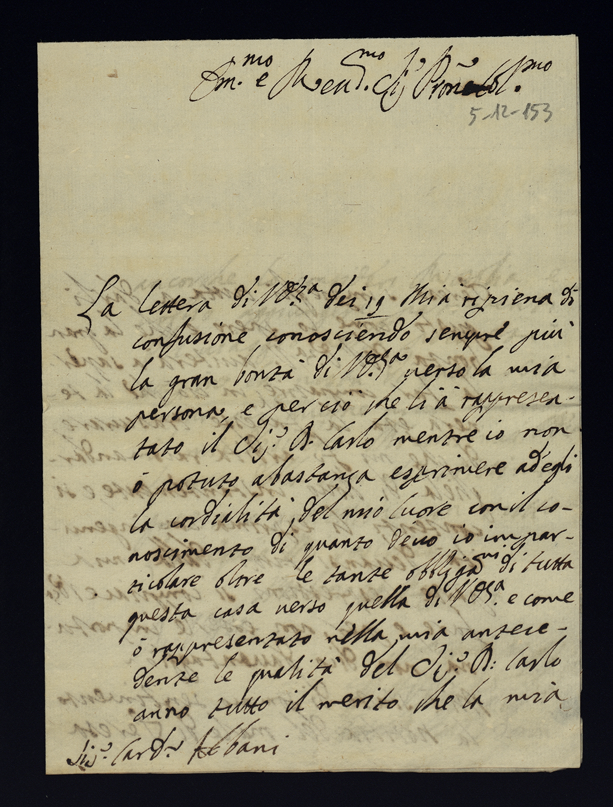 Em.mo e Reud.mo Sig.r Pron̄e Col.mo
5-12-153
La lettera di V. Em.za dei 19 mi à ripiena di
confusione conoscendo sempre più
la gran bontà di V. Em.za verso la mia
persona, e per ciò che li à rappresen-
tato il Sig.r D. Carlo mentre io non
ò potuto abastanza esprimere ad egli
la cordialità del mio cuore con il co-
noscimento di quanto devo io in par-
ticolare oltre le tante obbligaz.ni di tutta
questa casa verso quella di V. Em.za e come
ò rappresentato nella mia antece-
dente le qualità del Sig.r D: Carlo
anno tutto il merito che la mia
Sig.r Card.le Albani